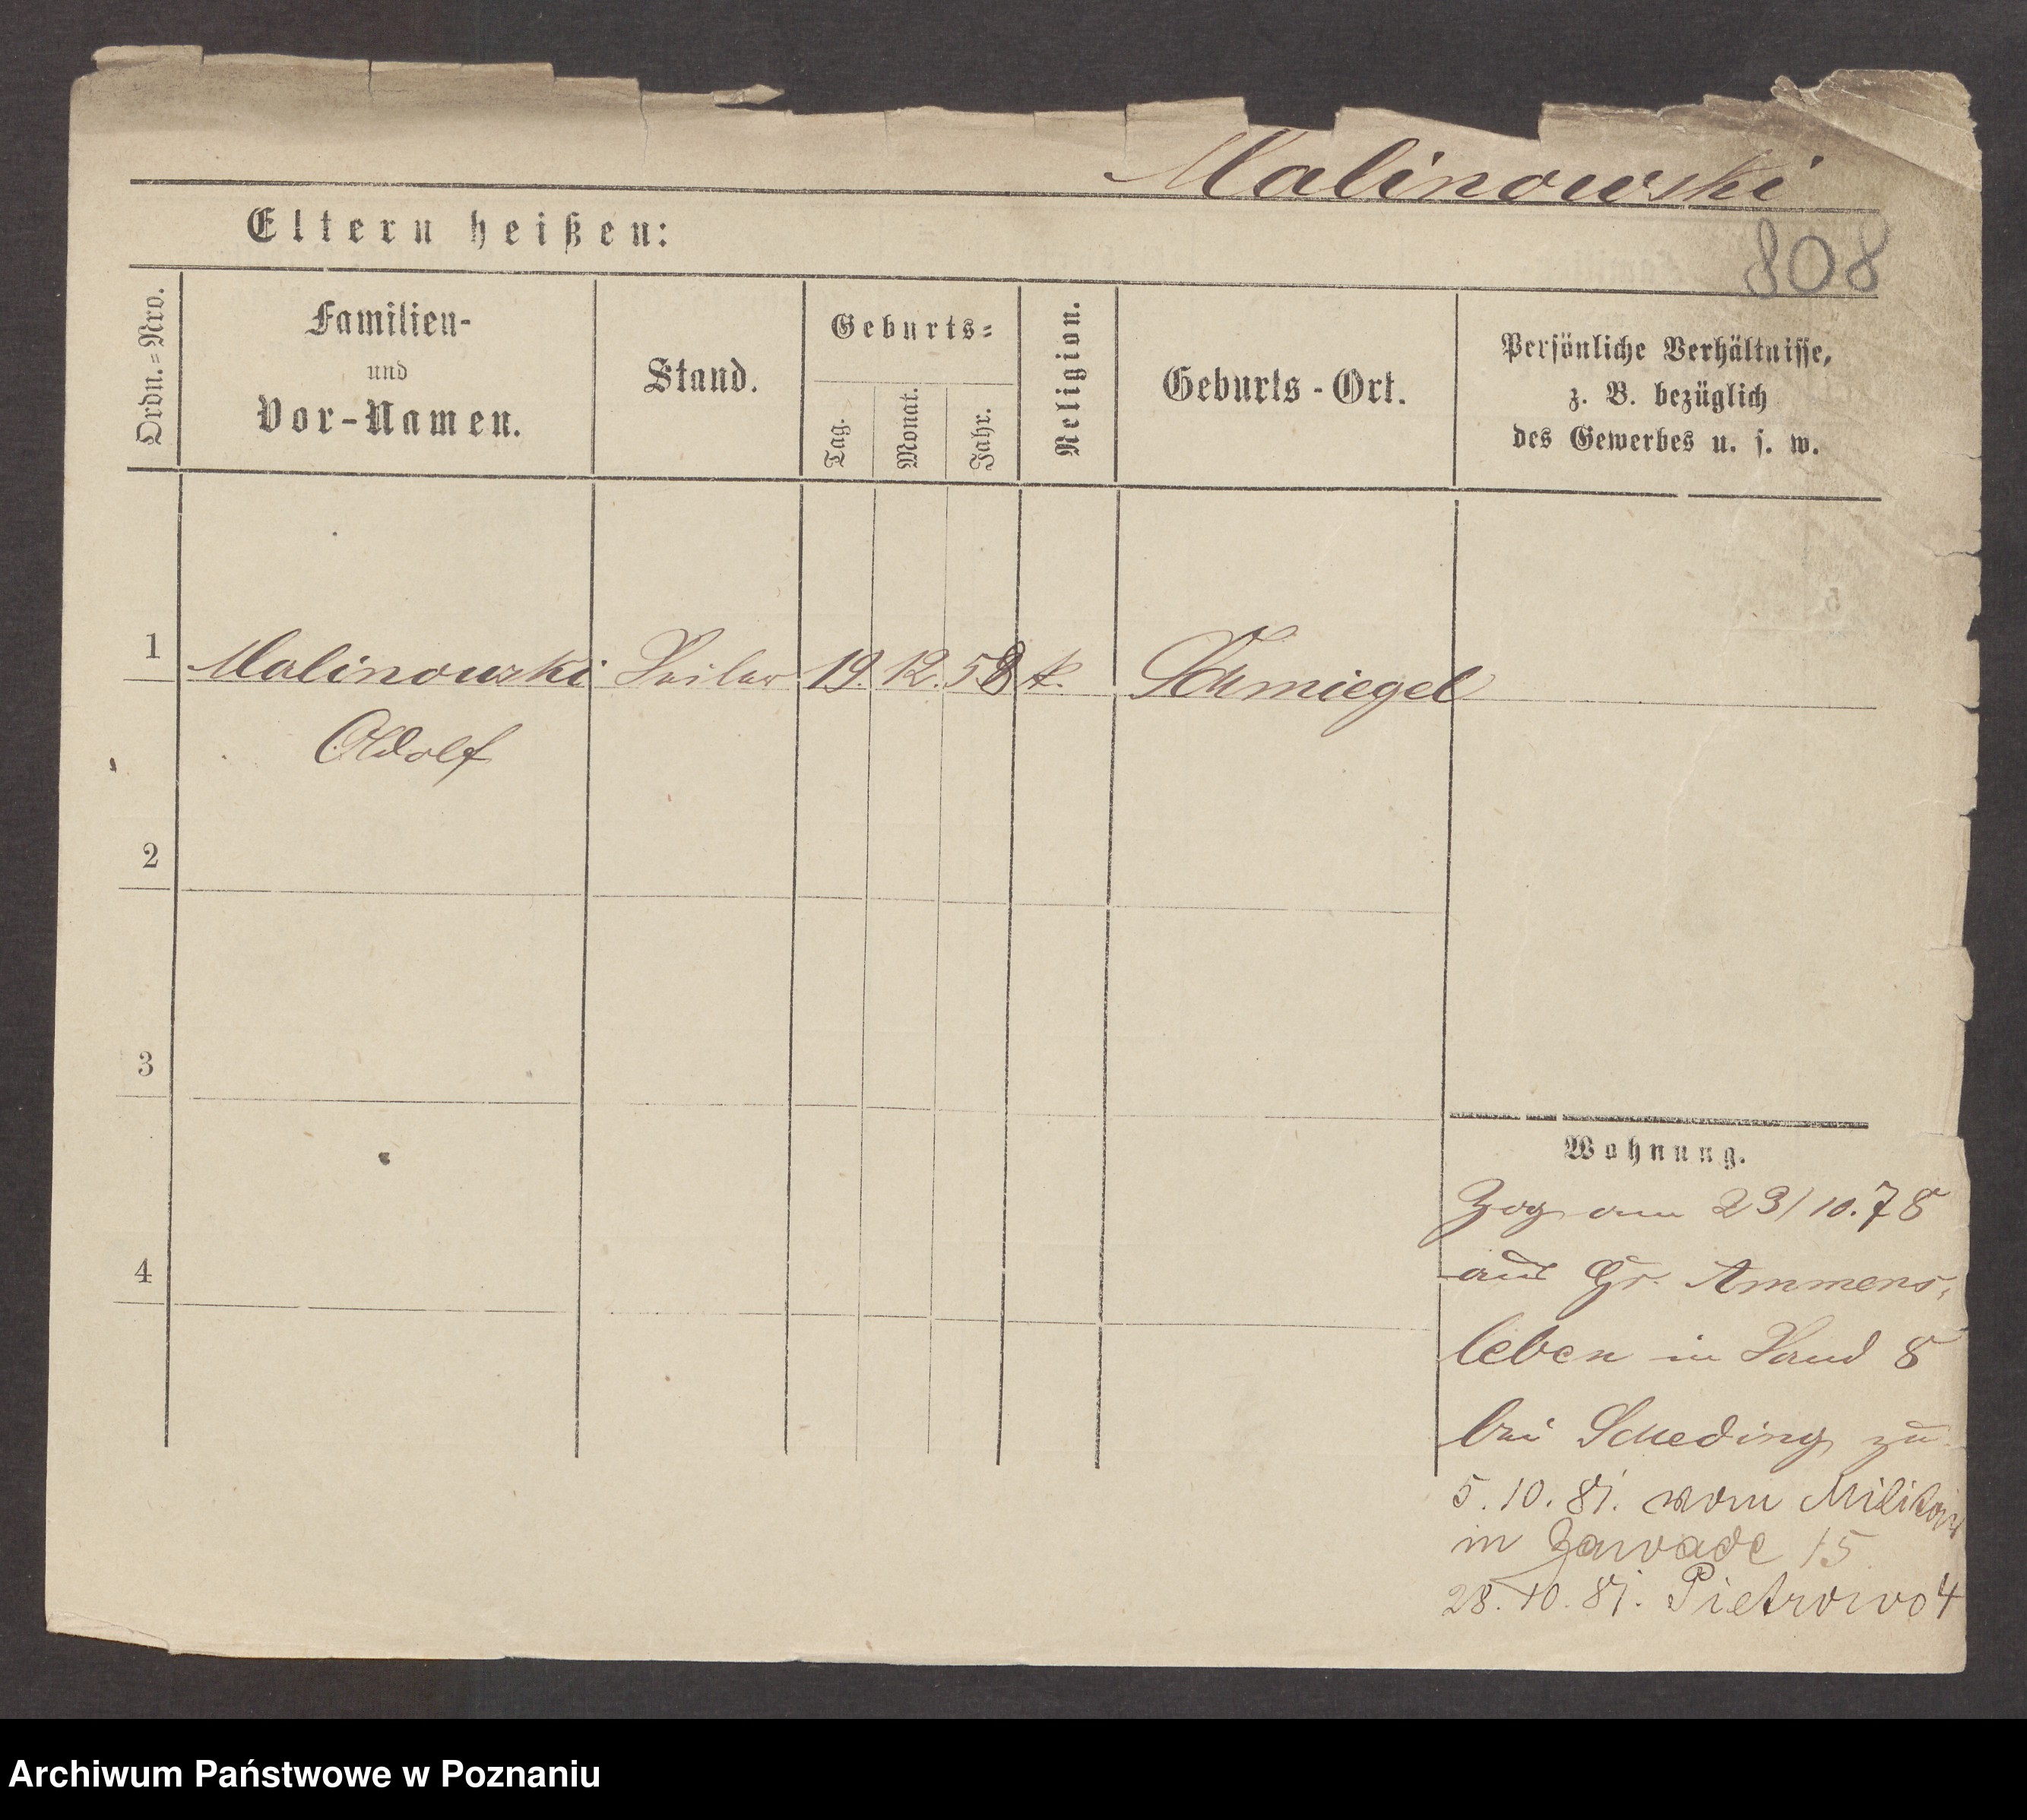 Malinowski
808
Eltern heißen:
Ordn.=Nro.
Familien-
und
Vor-Namen.
Stand.
Geburts=
Tag.
Monat.
Jahr.
Religion.
Geburts-Ort.
Persönliche Verhältnisse,
z. B. bezüglich
des Gewerbes u. s. w.
1 Malinowski Seiler 19. 12. 58 k. Schmiegel
Adolf
2
3
4
Wohnung.
Zog am 23/10.78
aus Gr. Ammens-
leben in Sand 8
bei Scheding zu
5.10.81. vom Militair
in Zawade 15
28.10.81. Pietrowo 4
Archiwum Państwowe w Poznaniu